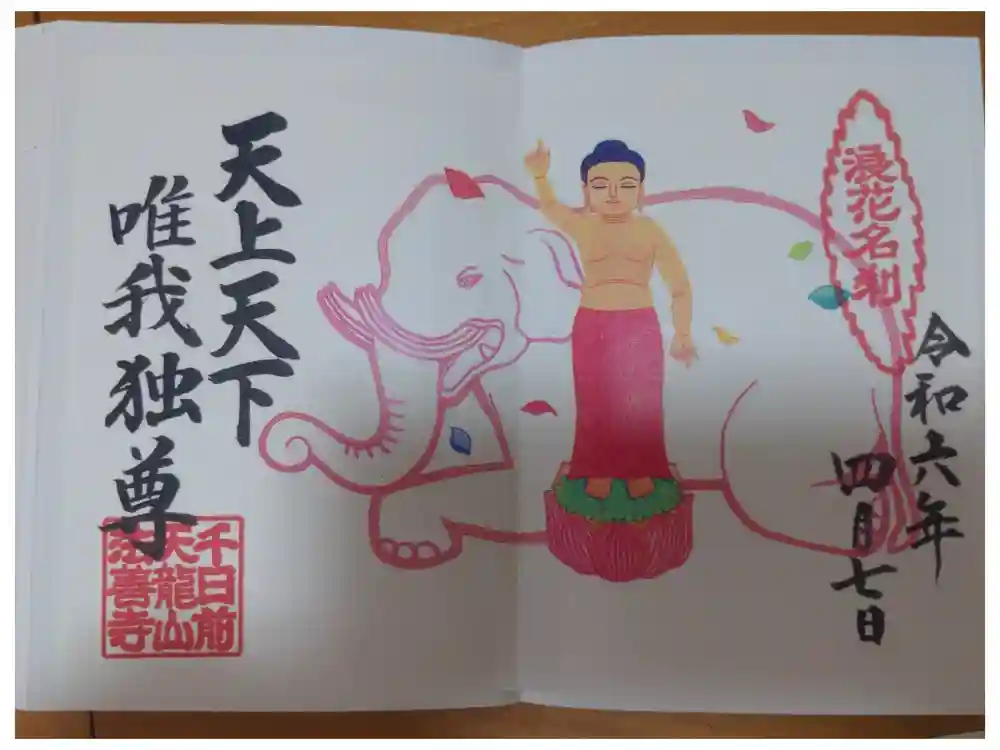 浪花名刹
令和六年
四月七日
天上天下
唯我独尊
千日前
天龍山
法善寺